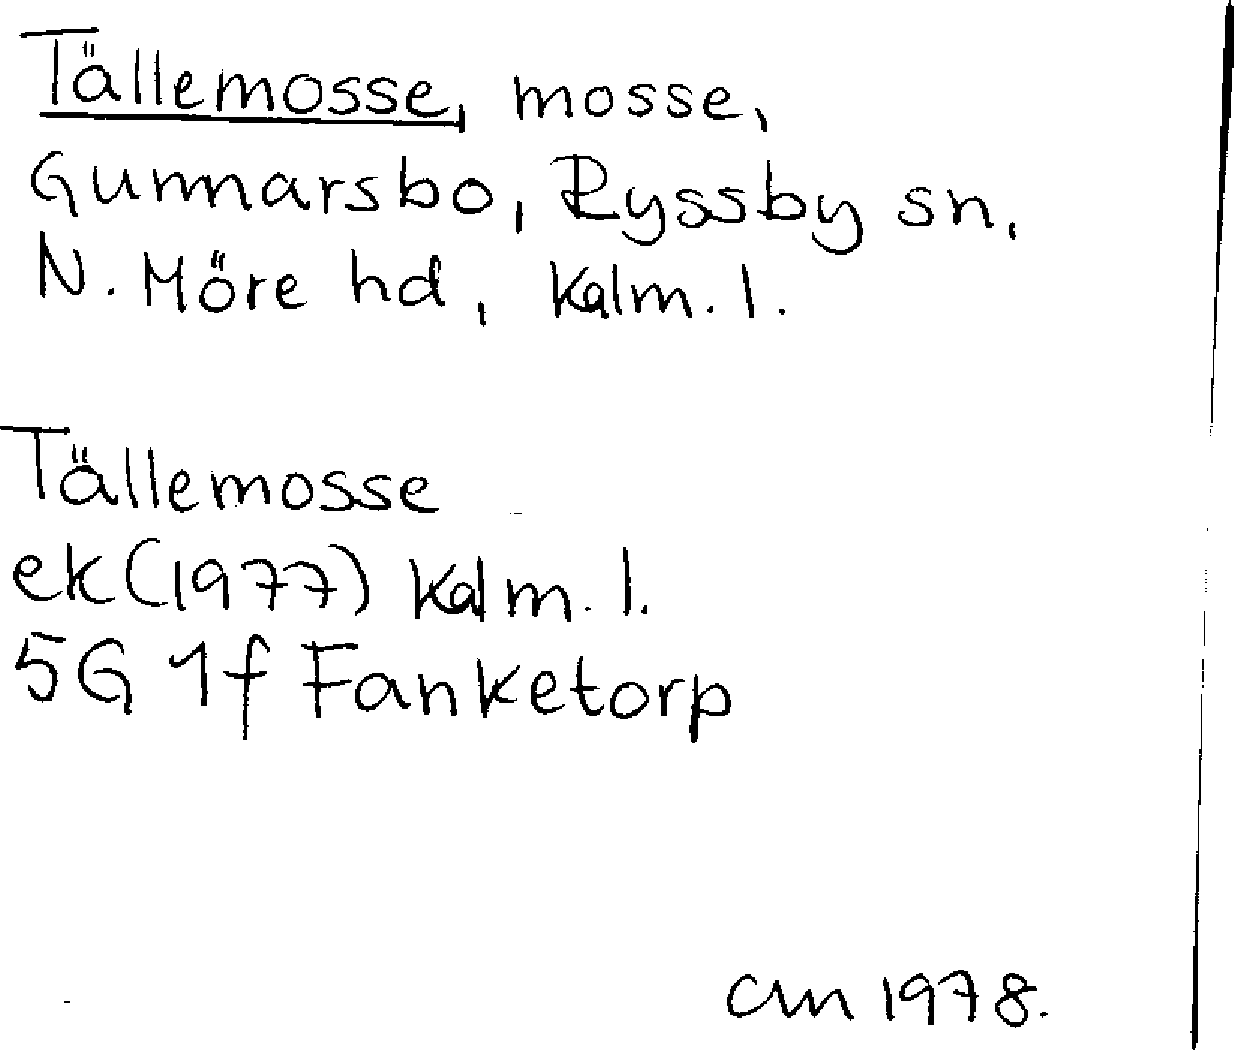 Tällemosse, mosse,
Gunnarsbo, Ryssby sn,
N. Möre hd, Kalm. l.
Tällemosse
ek (1977) Kalm. l.
5G 1f Fanketorp
cm 1978.